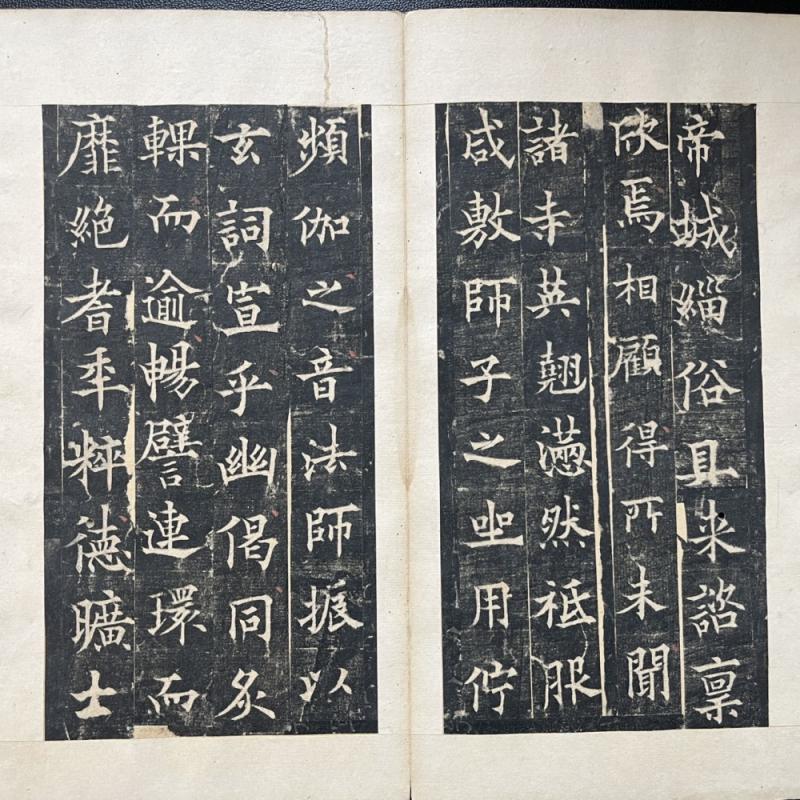 帝城緇俗具来諮稟
欣焉相顧得所未聞
諸寺英翹懣然祗服
咸敷師子之㘴用佇
頻伽之音法師振以
玄詞宣乎幽偈同炙
輠而逾暢譬連環而
靡絕耆年粹德曠士